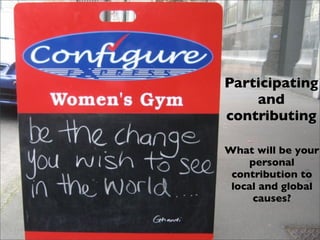 Configure
EXPRESS
Women's Gym
be the change
you wish to see
in the world....
Ghandi
Participating
and
contributing
What will be your
personal
contribution to
local and global
causes?